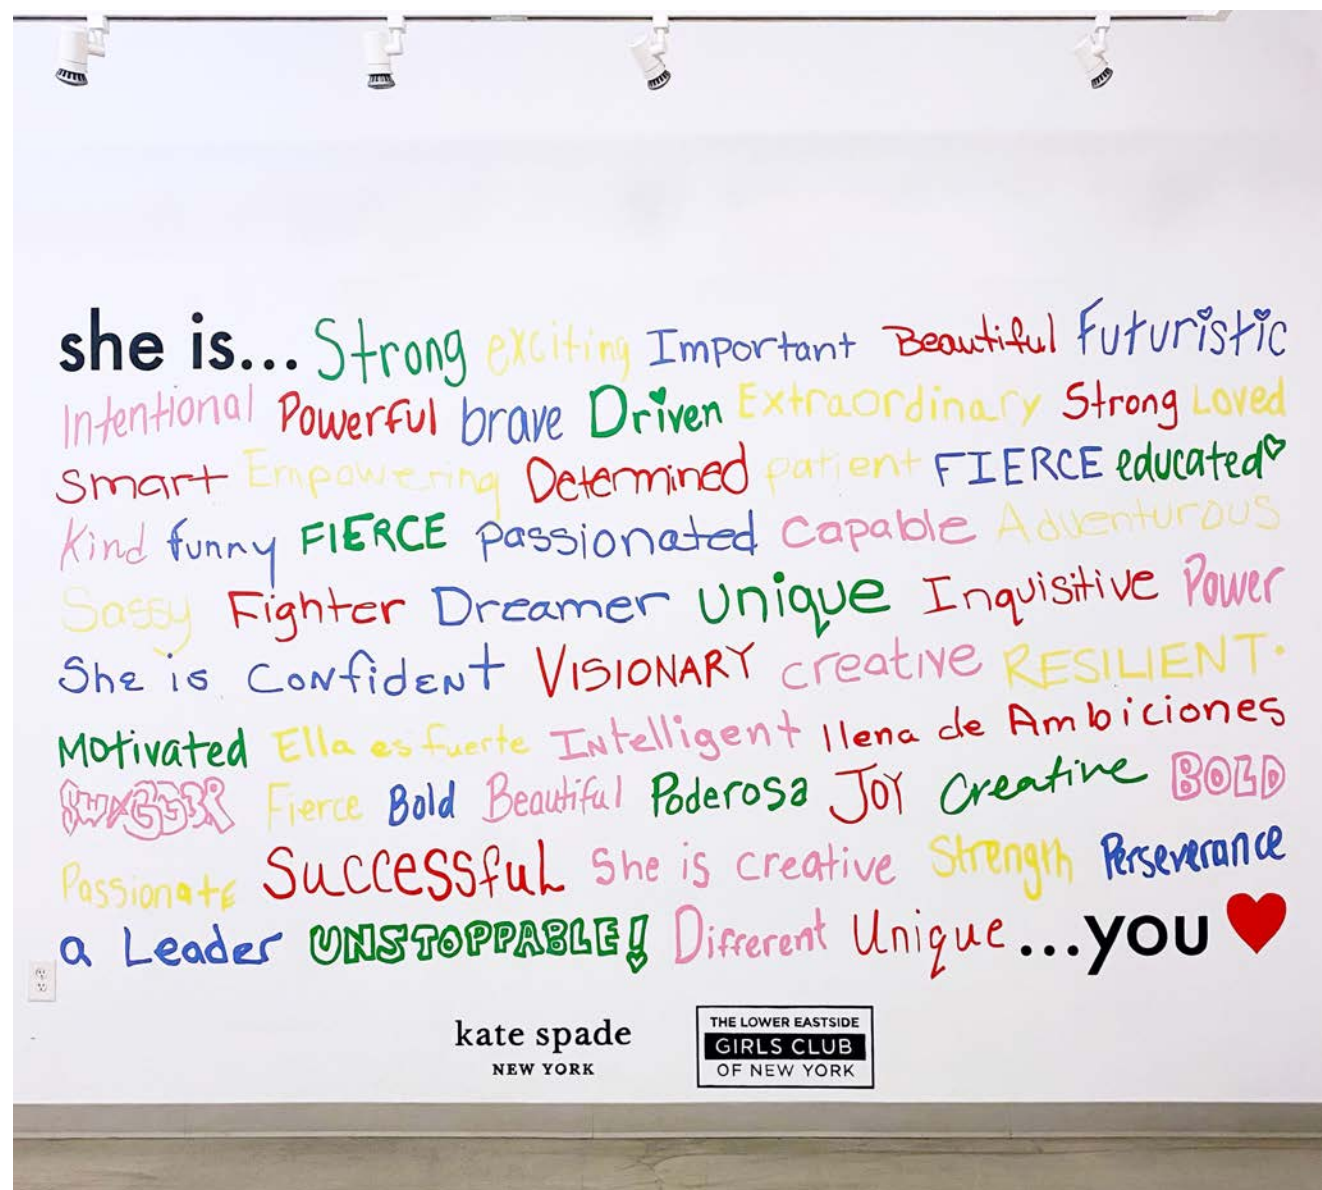 she is... Strong exciting Important Beautiful Futuristic
Intentional Powerful brave Driven Extraordinary Strong Loved
Smart Empowering Determined patient FIERCE educated
Kind funny FIERCE passionated Capable Adventurous
Sassy Fighter Dreamer unique Inquisitive Power
She is CoNfideNt VISIONARY creative RESILIENT.
Motivated Ella es fuerte INtelligent llena de Ambiciones
SWAGGER Fierce Bold Beautiful Poderosa JOY Creative BOLD
Passionate Successful She is creative Strength Perseverance
a Leader UNSTOPPABLE! Different Unique ...you
kate spade
NEW YORK
THE LOWER EASTSIDE
GIRLS CLUB
OF NEW YORK